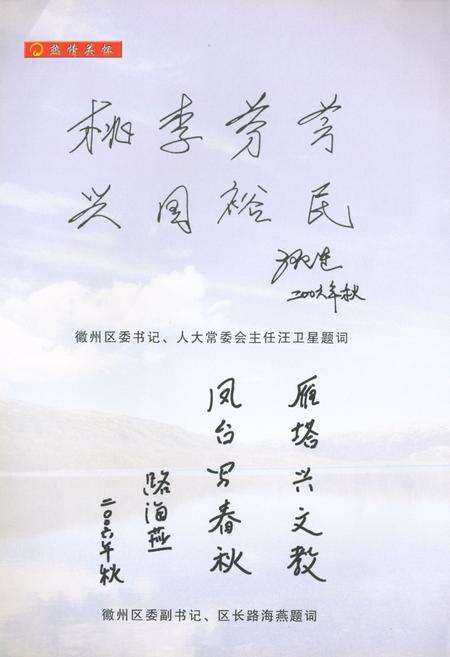 热情关怀
桃李芬芳
兴国裕民
二〇〇六年秋
徽州区委书记、人大常委会主任汪卫星题词
雁塔兴文教
凤台写春秋
路海燕
二〇〇六年秋
徽州区委副书记、区长路海燕题词